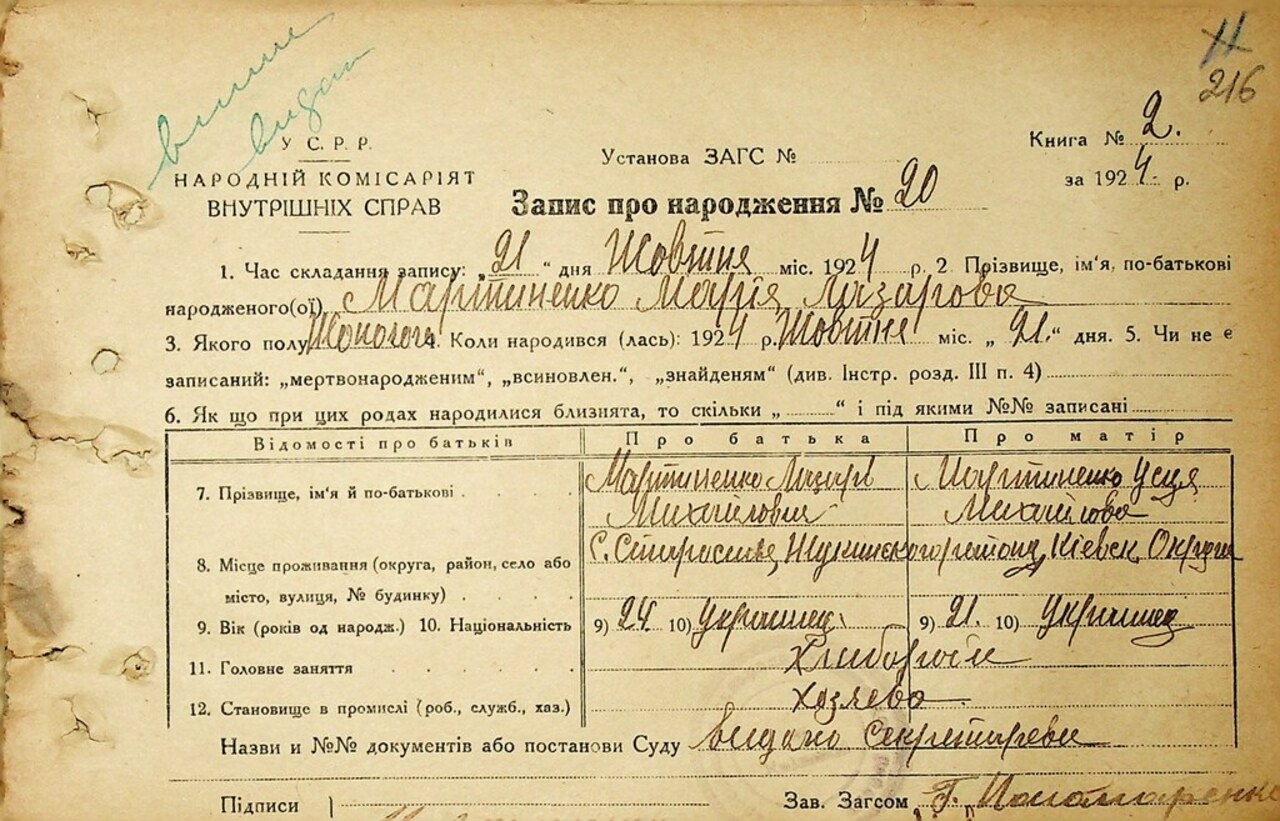 11
216
випис
видан
У С. Р. Р.
НАРОДНІЙ КОМІСАРІЯТ
ВНУТРІШНІХ СПРАВ
Установа ЗАГС №
Книга № 2.
за 1924 р.
Запис про народження № 20
1. Час складання запису: „21“ дня Жовтня міс. 1924 р. 2 Прізвище, ім'я, по-батькові
народженого(ої) Мартиненко Марія Лазарова
3. Якого полу Жоночого 4. Коли народився (лась): 1924 р. Жовтня міс. „21.“ дня. 5. Чи не є
записаний: „мертвонародженим“, „всиновлен.“, „знайденям“ (див. Інстр. розд. III п. 4)
6. Як що при цих родах народилися близнята, то скільки „ “ і під якими №№ записані
Відомості про батьків Про батька Про матір
7. Прізвище, ім'я й по-батькові Мартиненко Лазарь Мартиненко Устя
Михайлович Михайлова
8. Місце проживання (округа, район, село або С. Староселье, району, Кіевск. Округи
місто, вулиця, № будинку)
9. Вік (років од народж.) 10. Національність 9) 24 10) Украинец 9) 21. 10) Украинец
11. Головне заняття Хлибороби
12. Становище в промислі (роб., служб., хаз.) Хозяева
Назви и №№ документів або постанови Суду Видано Секретареви
Підписи Зав. Загсом Г. Пономаренко